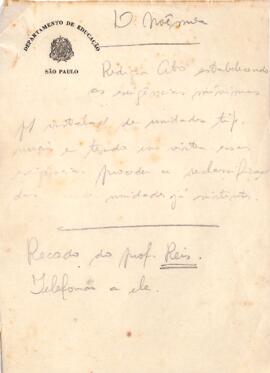 DEPARTAMENTO DE EDUCAÇÃO
SÃO PAULO
D. Noêmia
Redigir Ato estabelecendo
as exigências mínimas
p/ instalação de unidades tip.
rurais e tendo em vista essas
exigências proceder a reclassificação
das unidades já existentes.
Recado do prof. Reis.
Telefonar a ele.